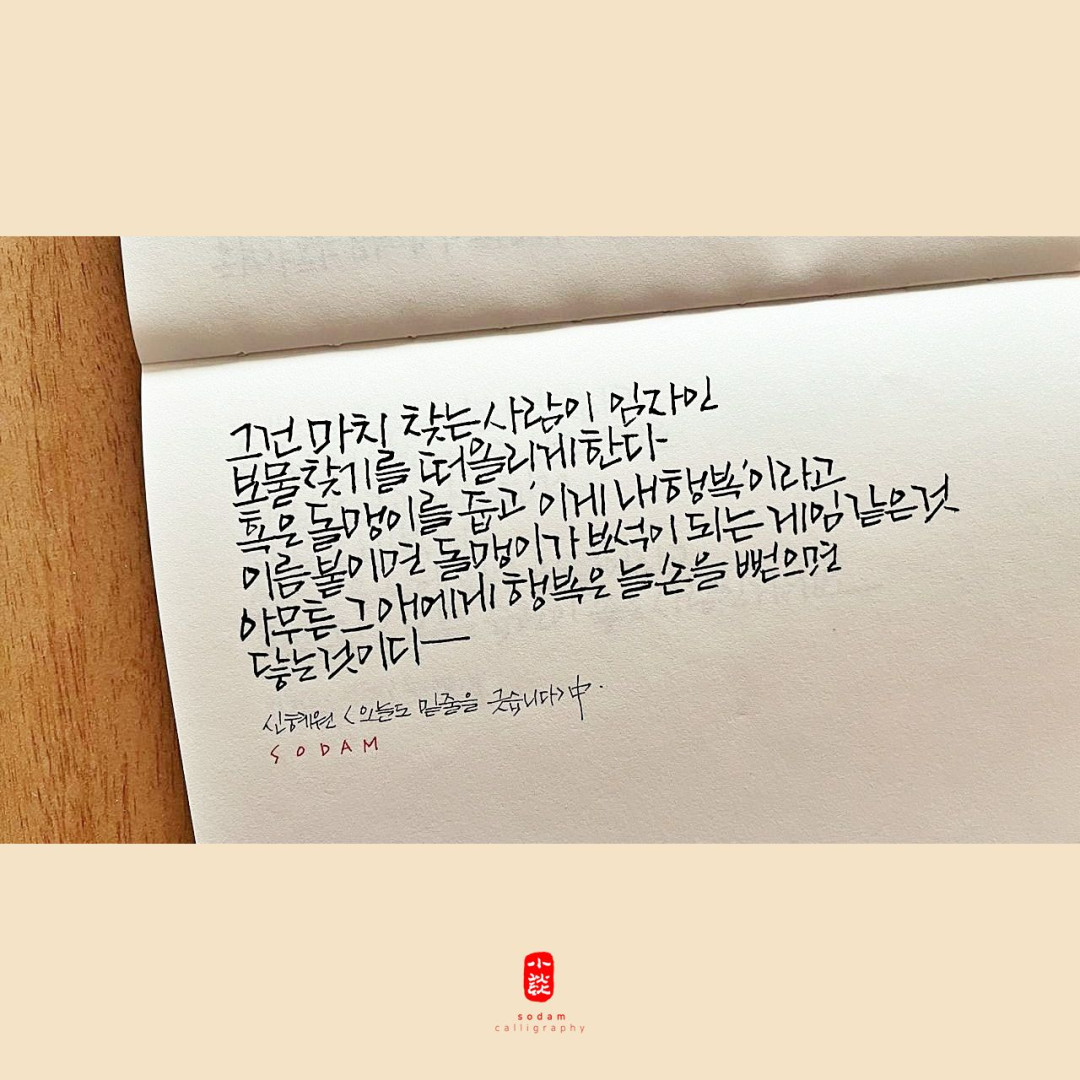 그건 마치 찾는 사람이 임자인
보물찾기를 떠올리게한다
혹은 돌맹이를 줍고 '이게 내 행복'이라고
이름 붙이면 돌맹이가 보석이 되는 게임 같은것
아무튼 그 애에게 행복은 늘 손을 뻗으면
닿는것이다
신혜원 <오늘도 밑줄을 긋습니다> 中.
SODAM
小談
sodam
calligraphy